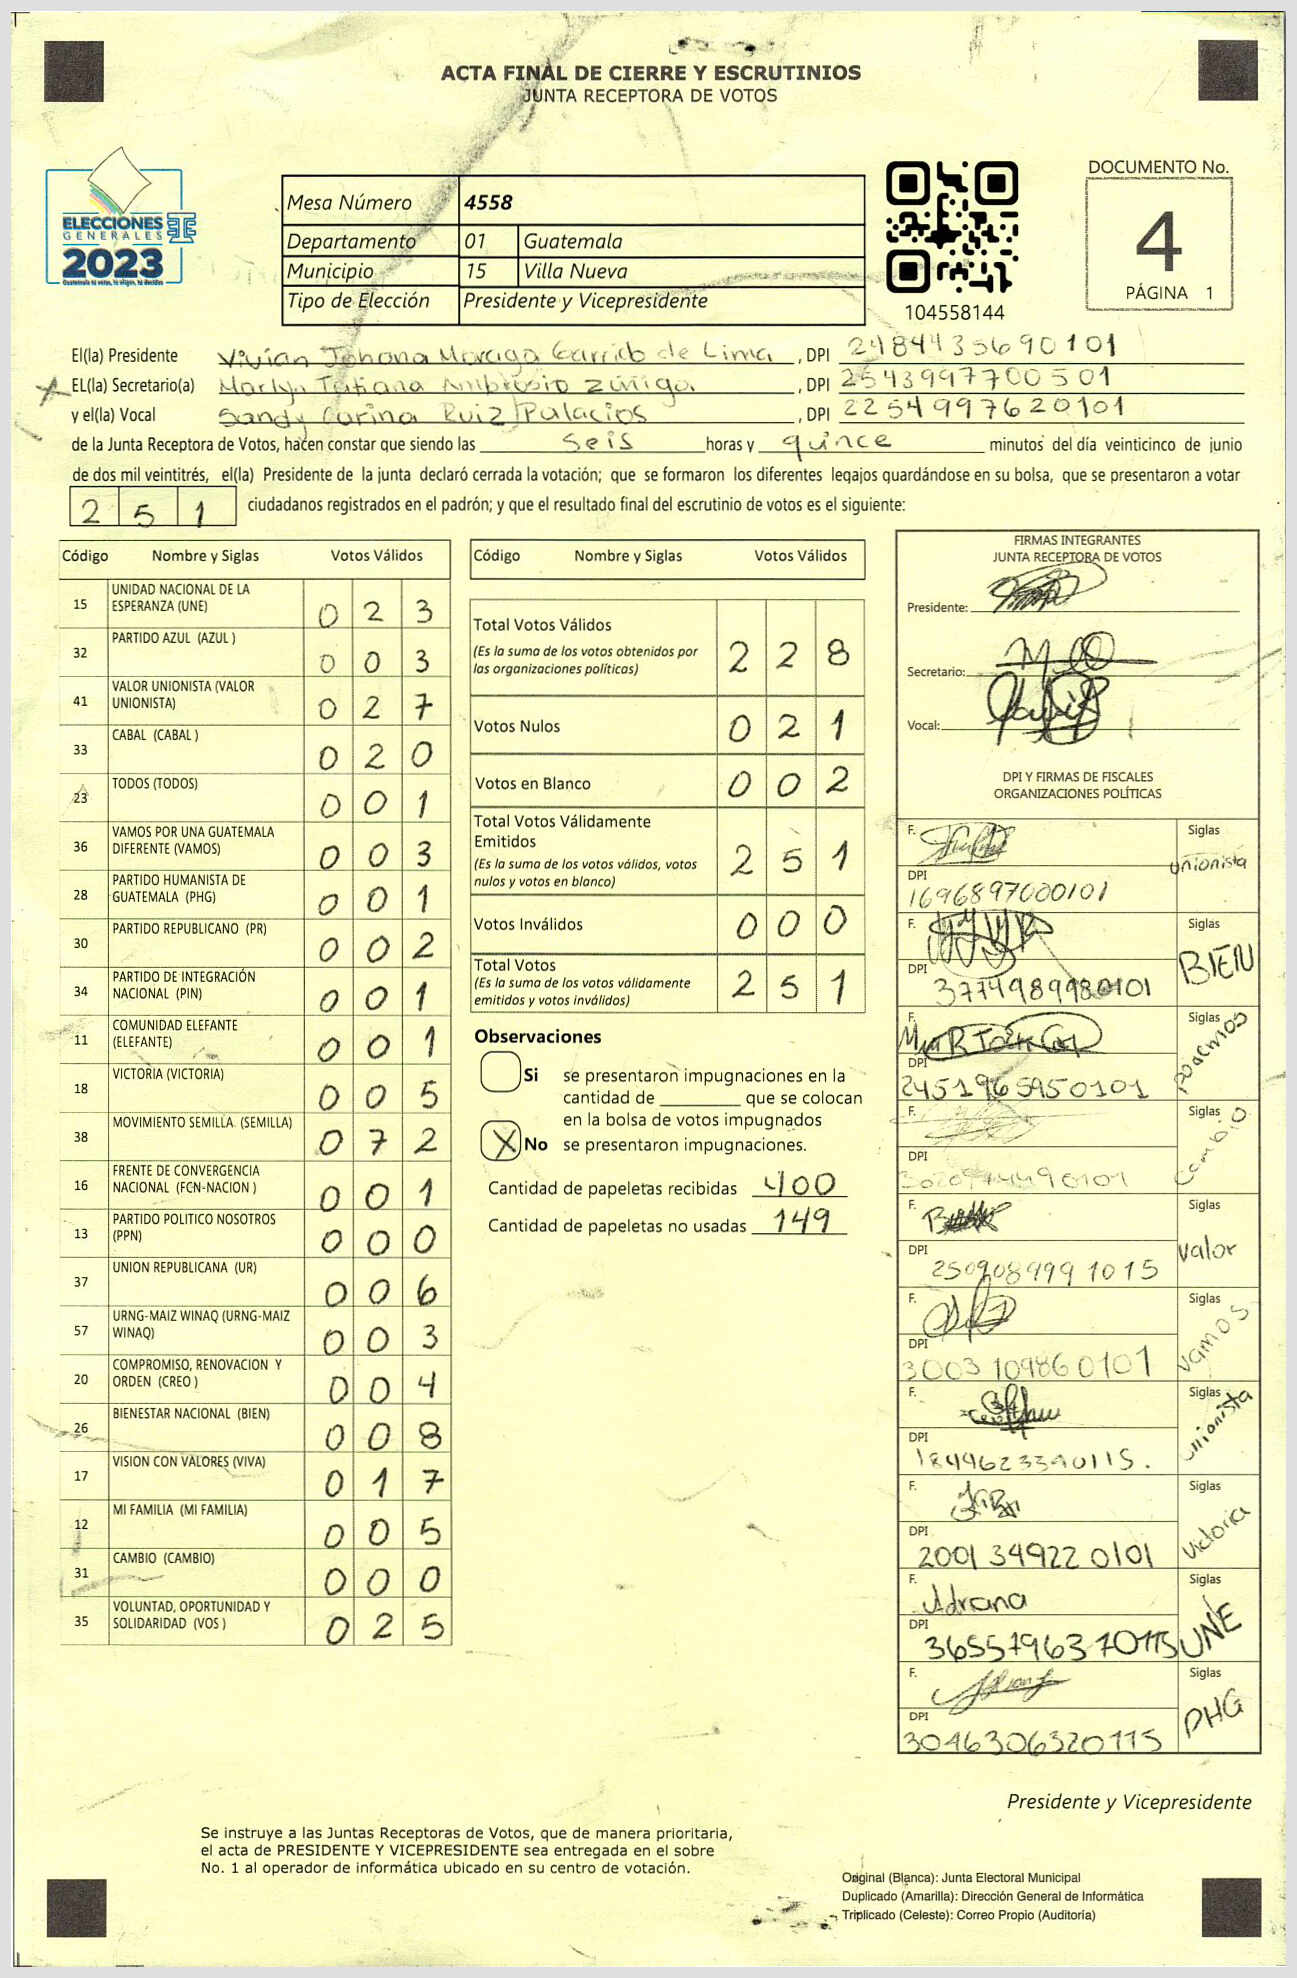 ACTA FINAL DE CIERRE Y ESCRUTINIOS
JUNTA RECEPTORA DE VOTOS
ELECCIONES
GENERALES
2023
Guatemala tú votas, tú eliges, tú decides
Mesa Número 4558
Departamento 01 Guatemala
Municipio 15 Villa Nueva
Tipo de Elección Presidente y Vicepresidente
104558144
DOCUMENTO No.
4
PÁGINA 1
El(la) Presidente Vivian Johana Garrido de Lima, DPI 2484435690101
EL(la) Secretario(a) Marlyn Tatiana Ambrosio Zúñiga, DPI 2543997700501
y el(la) Vocal Sandy Carina Ruiz Palacios, DPI 2254997620101
de la Junta Receptora de Votos, hacen constar que siendo las seis horas y quince minutos del día veinticinco de junio
de dos mil veintitrés, el(la) Presidente de la junta declaró cerrada la votación; que se formaron los diferentes legajos guardándose en su bolsa, que se presentaron a votar
251 ciudadanos registrados en el padrón; y que el resultado final del escrutinio de votos es el siguiente:
Código Nombre y Siglas Votos Válidos
15 UNIDAD NACIONAL DE LA ESPERANZA (UNE) 023
32 PARTIDO AZUL (AZUL ) 003
41 VALOR UNIONISTA (VALOR UNIONISTA) 027
33 CABAL (CABAL ) 020
23 TODOS (TODOS) 001
36 VAMOS POR UNA GUATEMALA DIFERENTE (VAMOS) 003
28 PARTIDO HUMANISTA DE GUATEMALA (PHG) 001
30 PARTIDO REPUBLICANO (PR) 002
34 PARTIDO DE INTEGRACIÓN NACIONAL (PIN) 001
11 COMUNIDAD ELEFANTE (ELEFANTE) 001
18 VICTORIA (VICTORIA) 005
38 MOVIMIENTO SEMILLA (SEMILLA) 072
16 FRENTE DE CONVERGENCIA NACIONAL (FCN-NACION ) 001
13 PARTIDO POLITICO NOSOTROS (PPN) 000
37 UNION REPUBLICANA (UR) 006
57 URNG-MAIZ WINAQ (URNG-MAIZ WINAQ) 003
20 COMPROMISO, RENOVACION Y ORDEN (CREO ) 004
26 BIENESTAR NACIONAL (BIEN) 008
17 VISION CON VALORES (VIVA) 017
12 MI FAMILIA (MI FAMILIA) 005
31 CAMBIO (CAMBIO) 000
35 VOLUNTAD, OPORTUNIDAD Y SOLIDARIDAD (VOS ) 025
Código Nombre y Siglas Votos Válidos
Total Votos Válidos 228
(Es la suma de los votos obtenidos por
las organizaciones políticas)
Votos Nulos 021
Votos en Blanco 002
Total Votos Válidamente
Emitidos 251
(Es la suma de los votos válidos, votos
nulos y votos en blanco)
Votos Inválidos 000
Total Votos 251
(Es la suma de los votos válidamente
emitidos y votos inválidos)
Observaciones
Si se presentaron impugnaciones en la
cantidad de ________ que se colocan
en la bolsa de votos impugnados
X No se presentaron impugnaciones.
Cantidad de papeletas recibidas 400
Cantidad de papeletas no usadas 149
FIRMAS INTEGRANTES
JUNTA RECEPTORA DE VOTOS
Presidente:
Secretario:
Vocal:
DPI Y FIRMAS DE FISCALES
ORGANIZACIONES POLÍTICAS
F. Siglas unionista
DPI 1696897000101
F. Siglas BIEN
DPI
F. Siglas podemos
DPI 2451965950101
F. Siglas cambio
DPI
F. Siglas valor
DPI
F. Siglas vamos
DPI 3003109860101
F. Siglas unionista
DPI 1849623390115.
F. Siglas victoria
DPI 2001349220101
F. Adriana Siglas UNE
DPI 3655796370115
F. Siglas PHG
DPI 3046306320115
Presidente y Vicepresidente
Se instruye a las Juntas Receptoras de Votos, que de manera prioritaria,
el acta de PRESIDENTE Y VICEPRESIDENTE sea entregada en el sobre
No. 1 al operador de informática ubicado en su centro de votación.
Original (Blanca): Junta Electoral Municipal
Duplicado (Amarilla): Dirección General de Informática
Triplicado (Celeste): Correo Propio (Auditoría)